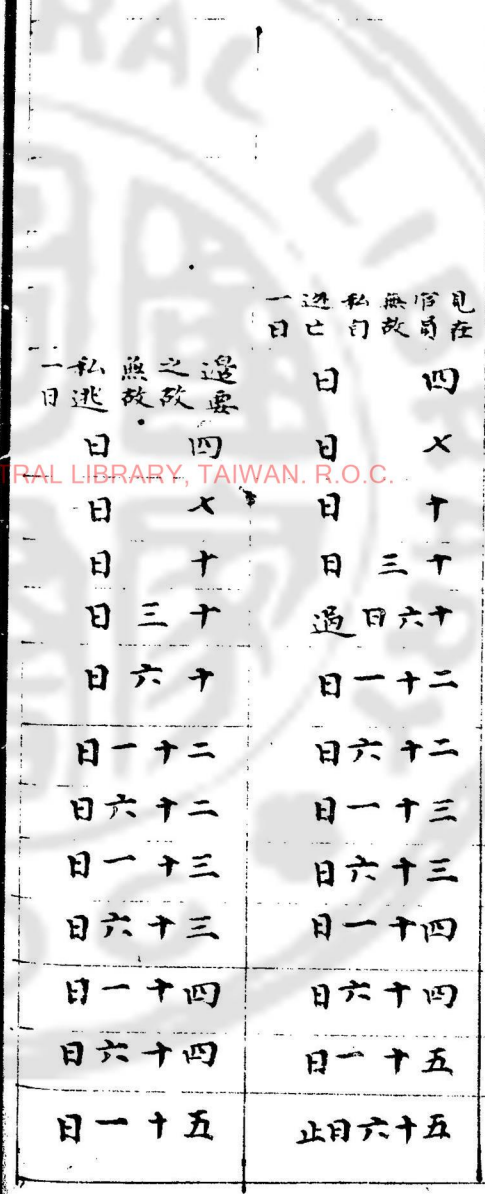 見在
官員
無故
私自
逃亡
一日
四日
七日
十日
十三日
十六日過
二十一日
二十六日
三十一日
三十六日
四十一日
四十六日
五十一日
五十六日止
邊要
之故
無故
私逃
一日
四日
七日
十日
十三日
十六日
二十一日
二十六日
三十一日
三十六日
四十一日
四十六日
五十一日
TRAL LIBRARY, TAIWAN. R.O.C.
RAL LIBRARY